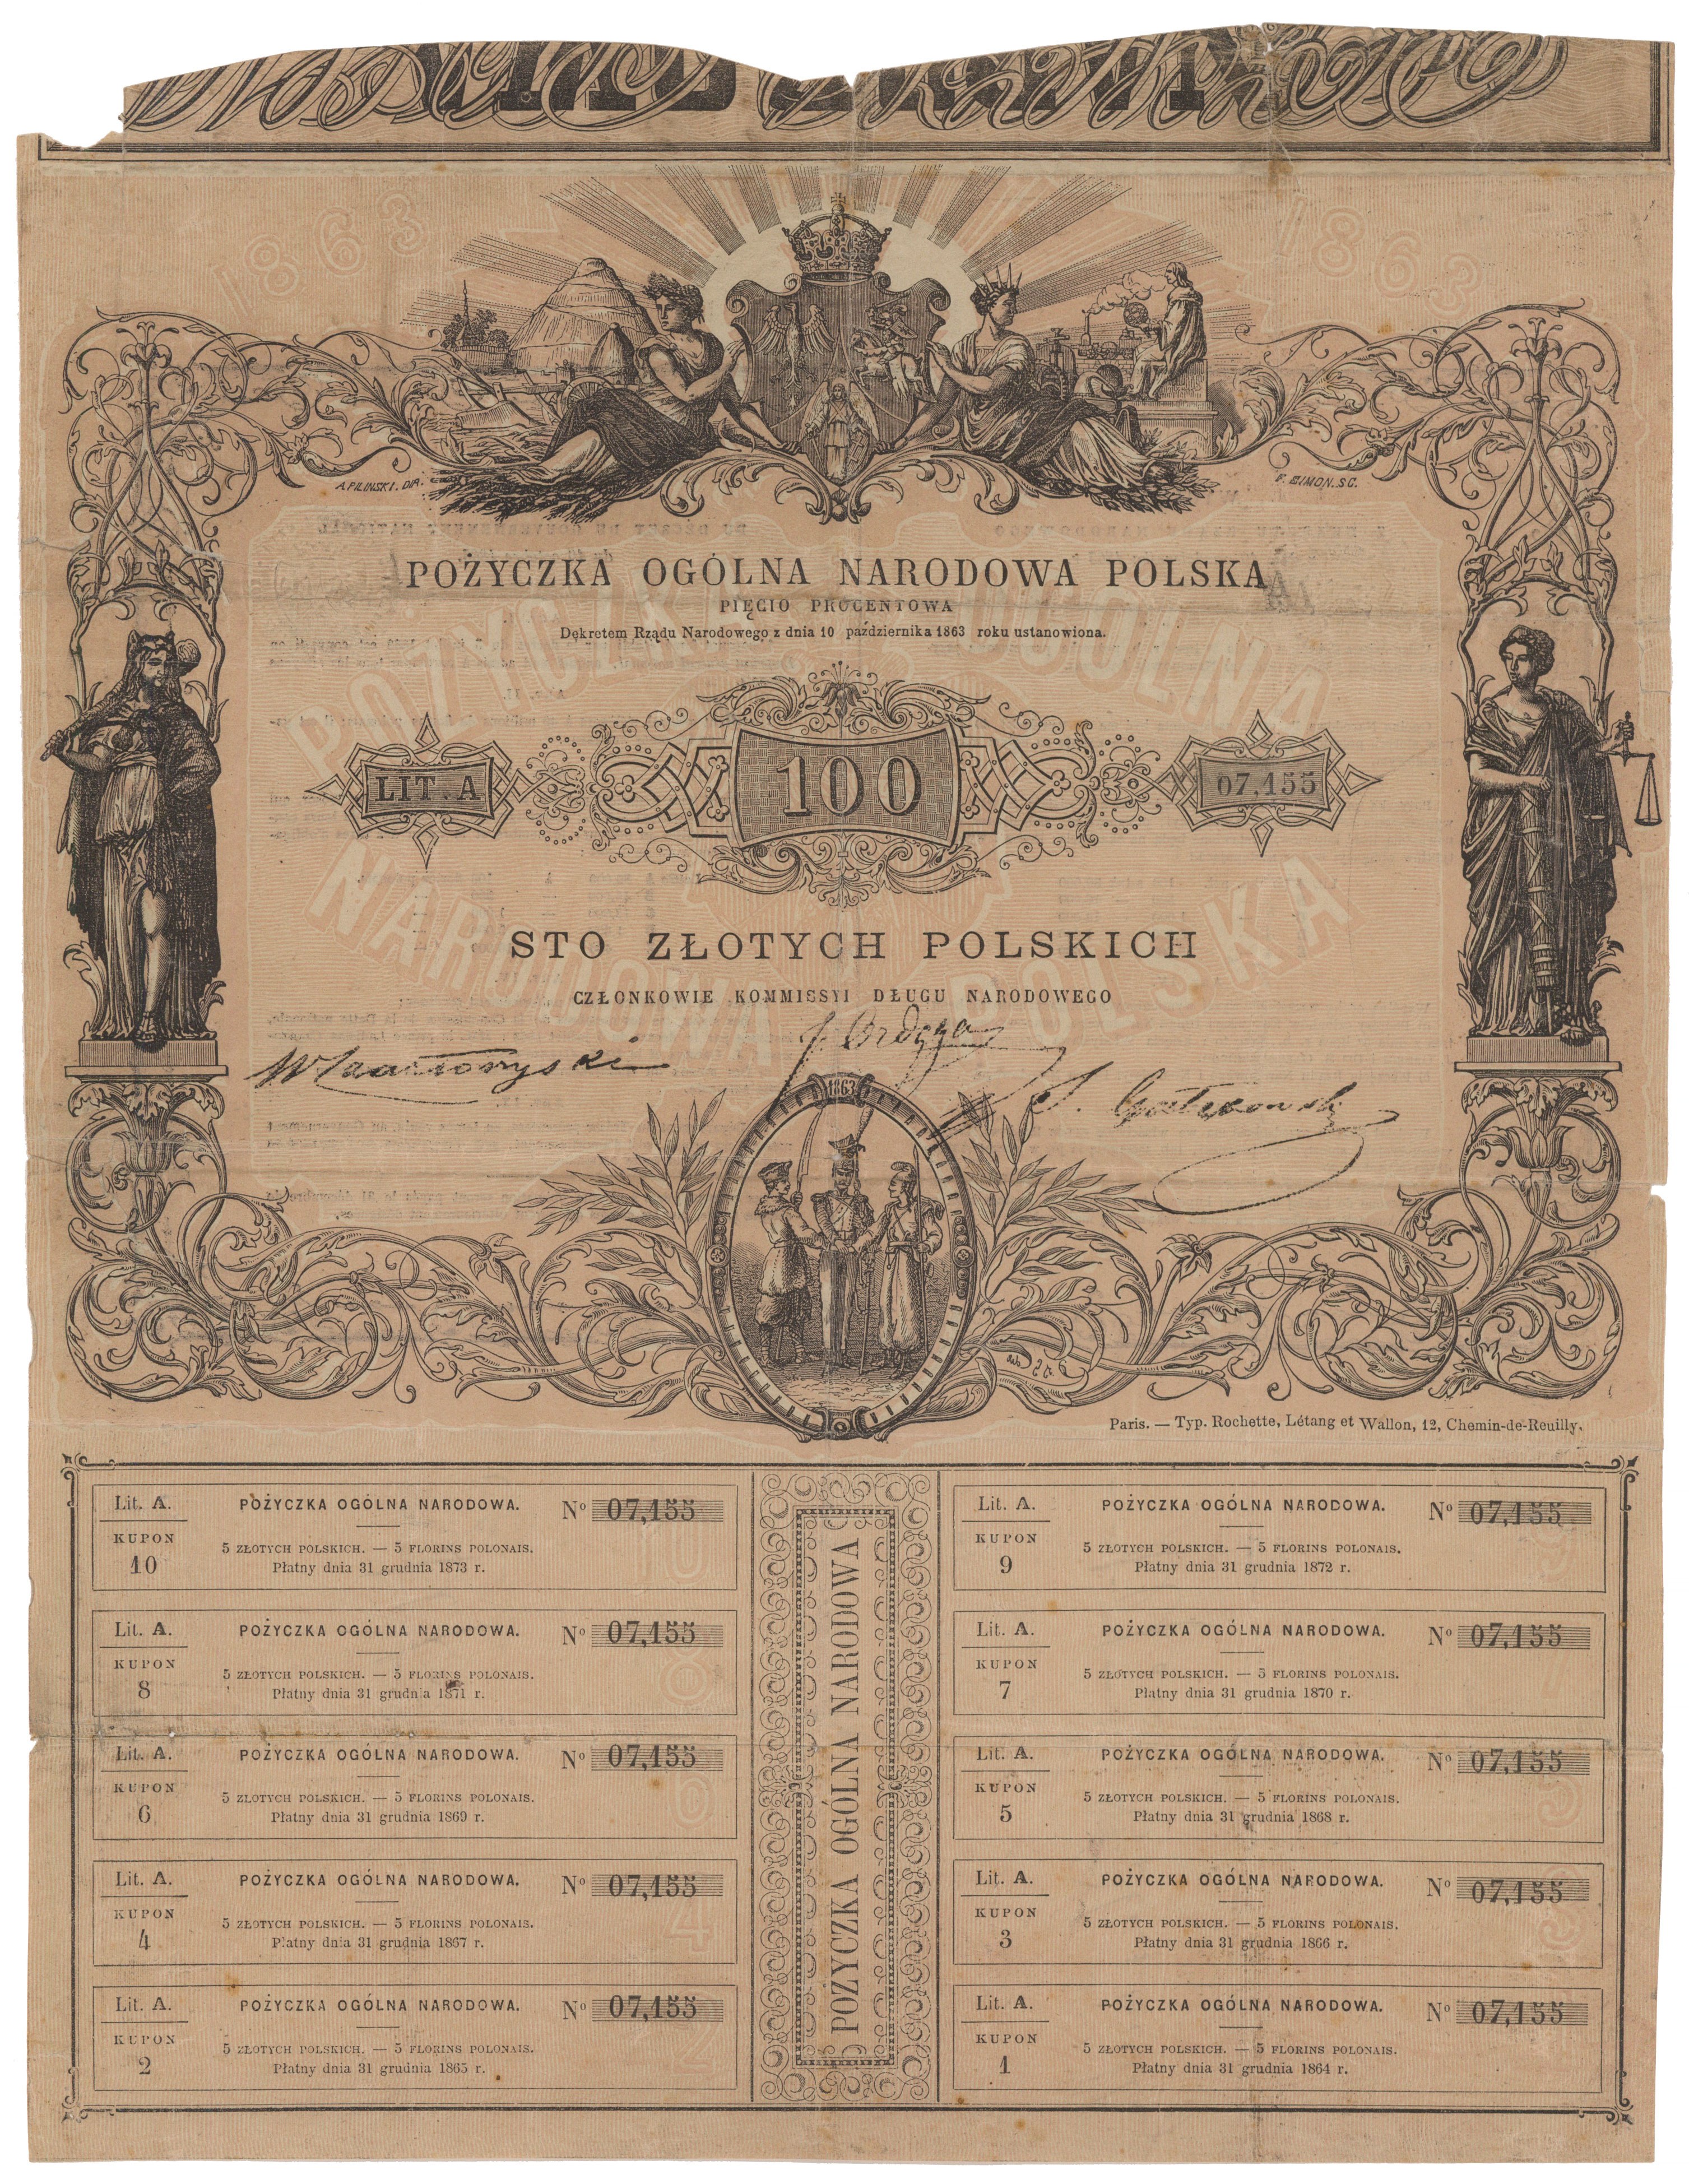 1863
1863
A. PILINSKI. DIR.
F. SIMON. SC.
POŻYCZKA OGÓLNA NARODOWA POLSKA
PIĘCIO PROCENTOWA
Dekretem Rządu Narodowego z dnia 10 października 1863 roku ustanowiona.
POŻYCZKA OGÓLNA
LIT. A
100
07,155
NARODOWA POLSKA
STO ZŁOTYCH POLSKICH
CZŁONKOWIE KOMMISSYI DŁUGU NARODOWEGO
J. Ordęga
W Czartoryski
1863
Paris. — Typ. Rochette, Létang et Wallon, 12, Chemin-de-Reuilly.
POŻYCZKA OGÓLNA NARODOWA
Lit. A. POŻYCZKA OGÓLNA NARODOWA. Nº 07,155
KUPON
10
5 ZŁOTYCH POLSKICH. — 5 FLORINS POLONAIS.
Płatny dnia 31 grudnia 1873 r.
Lit. A. POŻYCZKA OGÓLNA NARODOWA. Nº 07,155
KUPON
9
5 ZŁOTYCH POLSKICH. — 5 FLORINS POLONAIS.
Płatny dnia 31 grudnia 1872 r.
Lit. A. POŻYCZKA OGÓLNA NARODOWA. Nº 07,155
KUPON
8
5 ZŁOTYCH POLSKICH. — 5 FLORINS POLONAIS.
Płatny dnia 31 grudnia 1871 r.
Lit. A. POŻYCZKA OGÓLNA NARODOWA. Nº 07,155
KUPON
7
5 ZŁOTYCH POLSKICH. — 5 FLORINS POLONAIS.
Płatny dnia 31 grudnia 1870 r.
Lit. A. POŻYCZKA OGÓLNA NARODOWA. Nº 07,155
KUPON
6
5 ZŁOTYCH POLSKICH. — 5 FLORINS POLONAIS.
Płatny dnia 31 grudnia 1869 r.
Lit. A. POŻYCZKA OGÓLNA NARODOWA. Nº 07,155
KUPON
5
5 ZŁOTYCH POLSKICH. — 5 FLORINS POLONAIS.
Płatny dnia 31 grudnia 1868 r.
Lit. A. POŻYCZKA OGÓLNA NARODOWA. Nº 07,155
KUPON
4
5 ZŁOTYCH POLSKICH. — 5 FLORINS POLONAIS.
Płatny dnia 31 grudnia 1867 r.
Lit. A. POŻYCZKA OGÓLNA NARODOWA. Nº 07,155
KUPON
3
5 ZŁOTYCH POLSKICH. — 5 FLORINS POLONAIS.
Płatny dnia 31 grudnia 1866 r.
Lit. A. POŻYCZKA OGÓLNA NARODOWA. Nº 07,155
KUPON
2
5 ZŁOTYCH POLSKICH. — 5 FLORINS POLONAIS.
Płatny dnia 31 grudnia 1865 r.
Lit. A. POŻYCZKA OGÓLNA NARODOWA. Nº 07,155
KUPON
1
5 ZŁOTYCH POLSKICH. — 5 FLORINS POLONAIS.
Płatny dnia 31 grudnia 1864 r.